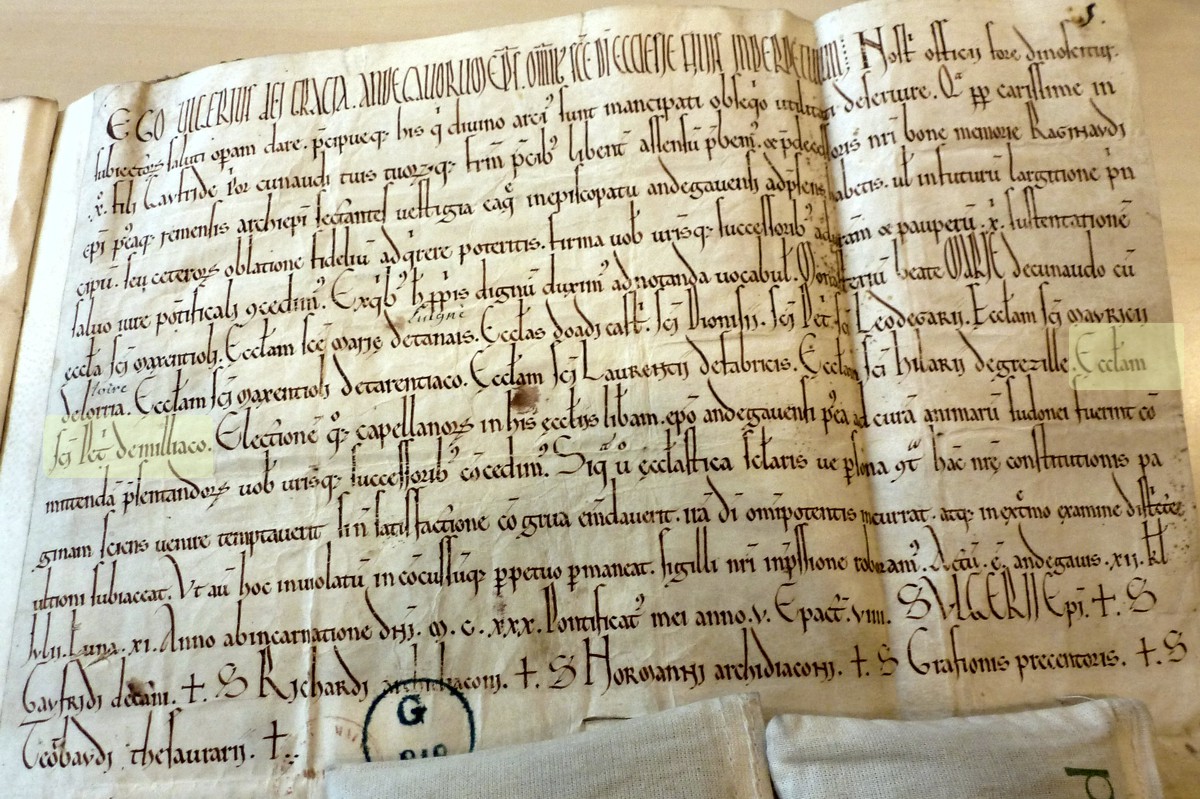 EGO ULGERIUS DEI GRACIA. ANDEGAVORUM EPS. OMNIB SCE DI ECCLESIE FILIIS IN DEI Nostr officii fore dinoscitur.
subiectorz saluti opam dare. pcipueq; his q divino arci sunt mancipati obseqo utilitati deservire. Qa pp carissime in
.x. fili Gaufride Por cunaudi tuis tuorzq; frm pcib' libent assensu pbem. & pdecessoris nri bone memorie RAGINAUDI
epi pceaq; remensis archiepi sectantes vestigia eaq in episcopatu andegavensi adpsens habetis. ul in futuru largitione pn
cipu. seu ceterorz oblatione fideliu adqirere poteritis. firma vob vrisq; successorib' ad & pauperu .x. sustentatione
salvo iure pontificali ɔcedim'. Ex qib' h pp is dignu duxim' adnotanda vocabul. Monasteriu beate MARIE decunaudo cu
suigne
eccla sci maxentioli. Ecclam sce marie detanais. Ecclas doadi cast. sci Dionisii. Sci Pet. sci Leodegarii. Ecclam sci MAURICII
loire
deloiria. Ecclam sci maxentioli detarentiaco. Ecclam sci LAURENTII defabricis. Ecclam sci hilarii degrezille. Ecclam
sci Pet demilliaco. Electione q; capellanorz in his ecclis libam. epo andegavensi pcea ad cura animaru si idonei fuerint co
mittenda psentandorz vob vrisq; successorib' cocedim'. Siq u ecclastica sclaris ve psona ɔt hac nre constitutionis pa
ginam sciens venire temptaverit si n satisfactione cogrua emdaverit. ira di omipotentis incurrat. atq; in extmo examine districte
ultioni subiaceat. Vt au hoc inviolatu incocussuq; ppetuo pmaneat. sigilli nri inpssione roboram'. Actu. e. andegavis. xii. kl
Julii. Luna. xi. Anno abincarnatione dni. M. C. XXX. Pontificat mei anno. v. Epact. viiii. S VLGERII Epi. + S
Gaufridi decani. + S Richardi archidiaconi. + S NORMANNI archidiaconi. + S Grafionis precentoris. + S
Teobaudi thesaurarii. +
G